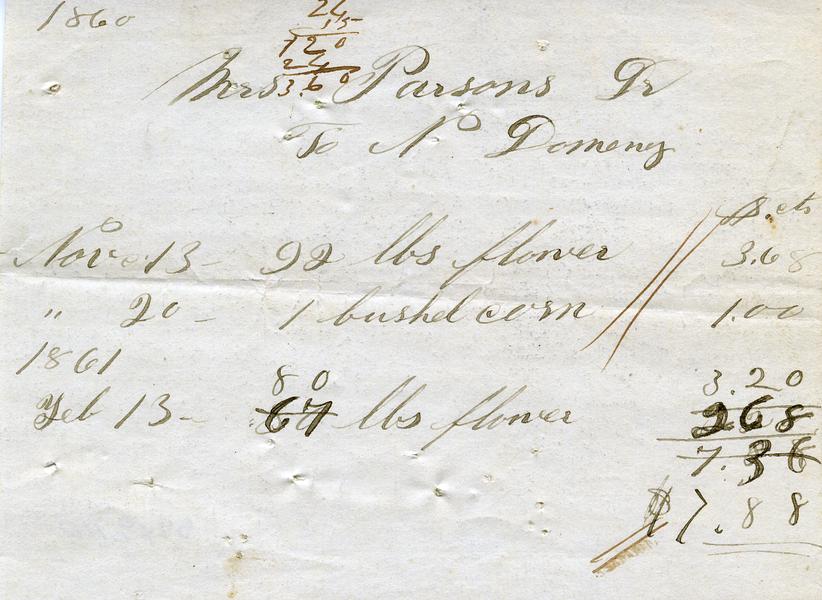 1860
24
15
120
24
3.60
Mrs Parsons Dr
To N Domeny
$. cts
Nov 13 - 92 lbs flower 3.68
" 20 - 1 bushel corn 1.00
1861
80 3.20
Feb 13 - 67 lbs flower 268
7.36
$7.88